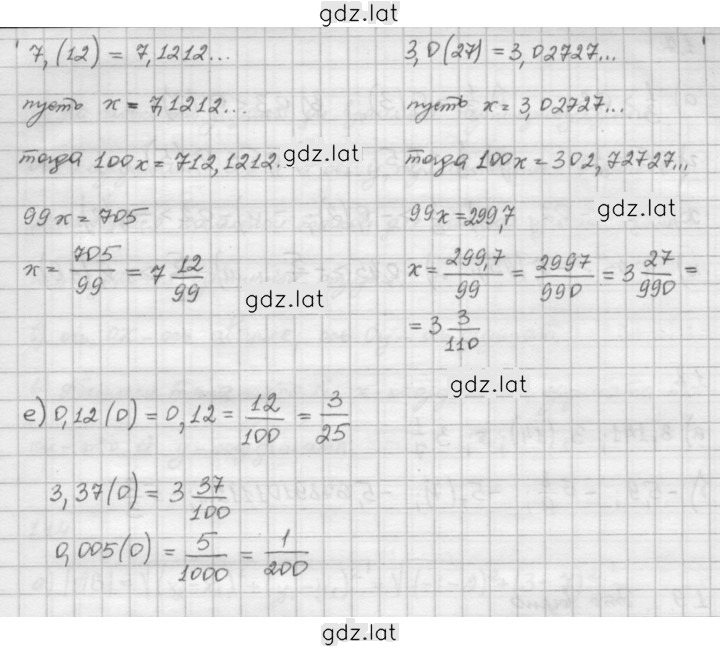 gdz.lat
7,(12) = 7,1212...
пусть x = 7,1212...
тогда 100x = 712,1212.
gdz.lat
99x = 705
x = 705/99 = 7 12/99
gdz.lat
3,0(27) = 3,02727...
пусть x = 3,02727...
тогда 100x = 302,72727...
gdz.lat
99x = 299,7
x = 299,7/99 = 2997/990 = 3 27/990 =
= 3 3/110
gdz.lat
е) 0,12(0) = 0,12 = 12/100 = 3/25
3,37(0) = 3 37/100
0,005(0) = 5/1000 = 1/200
gdz.lat